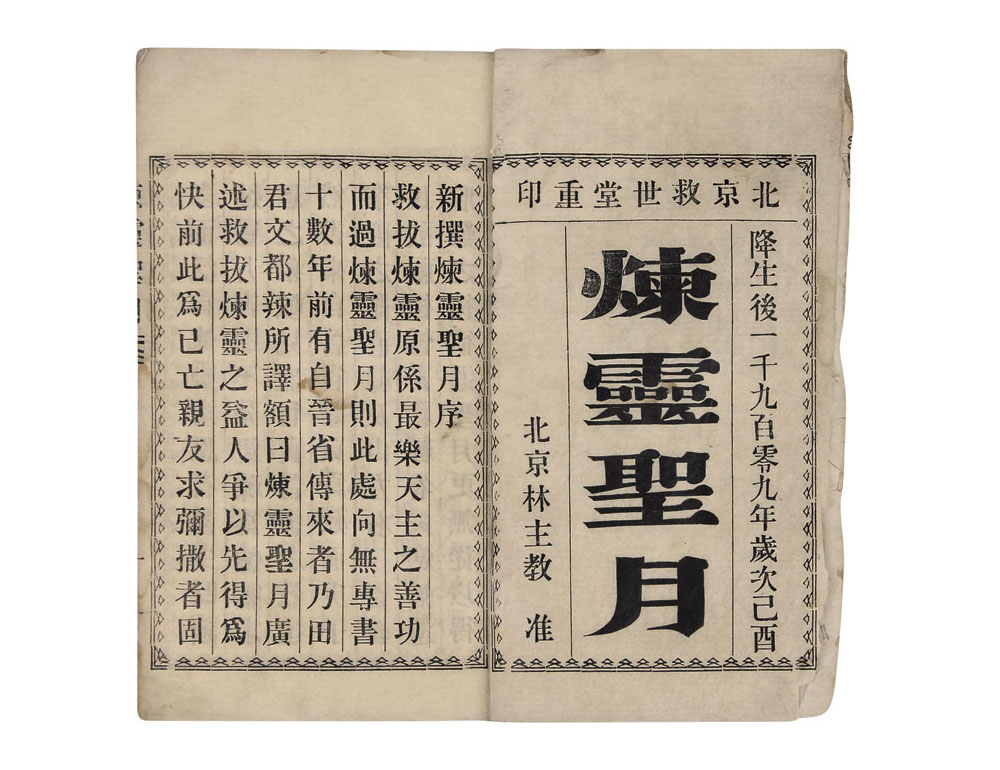 北京救世堂重印
降生後一千九百零九年歲次己酉
煉靈聖月
北京林主教 准
新撰煉靈聖月序
救拔煉靈原係最樂天主之善功
而過煉靈聖月則此處向無專書
十數年前有自晉省傳來者乃田
君文都辣所譯額曰煉靈聖月廣
述救拔煉靈之益人爭以先得爲
快前此爲已亡親友求彌撒者固